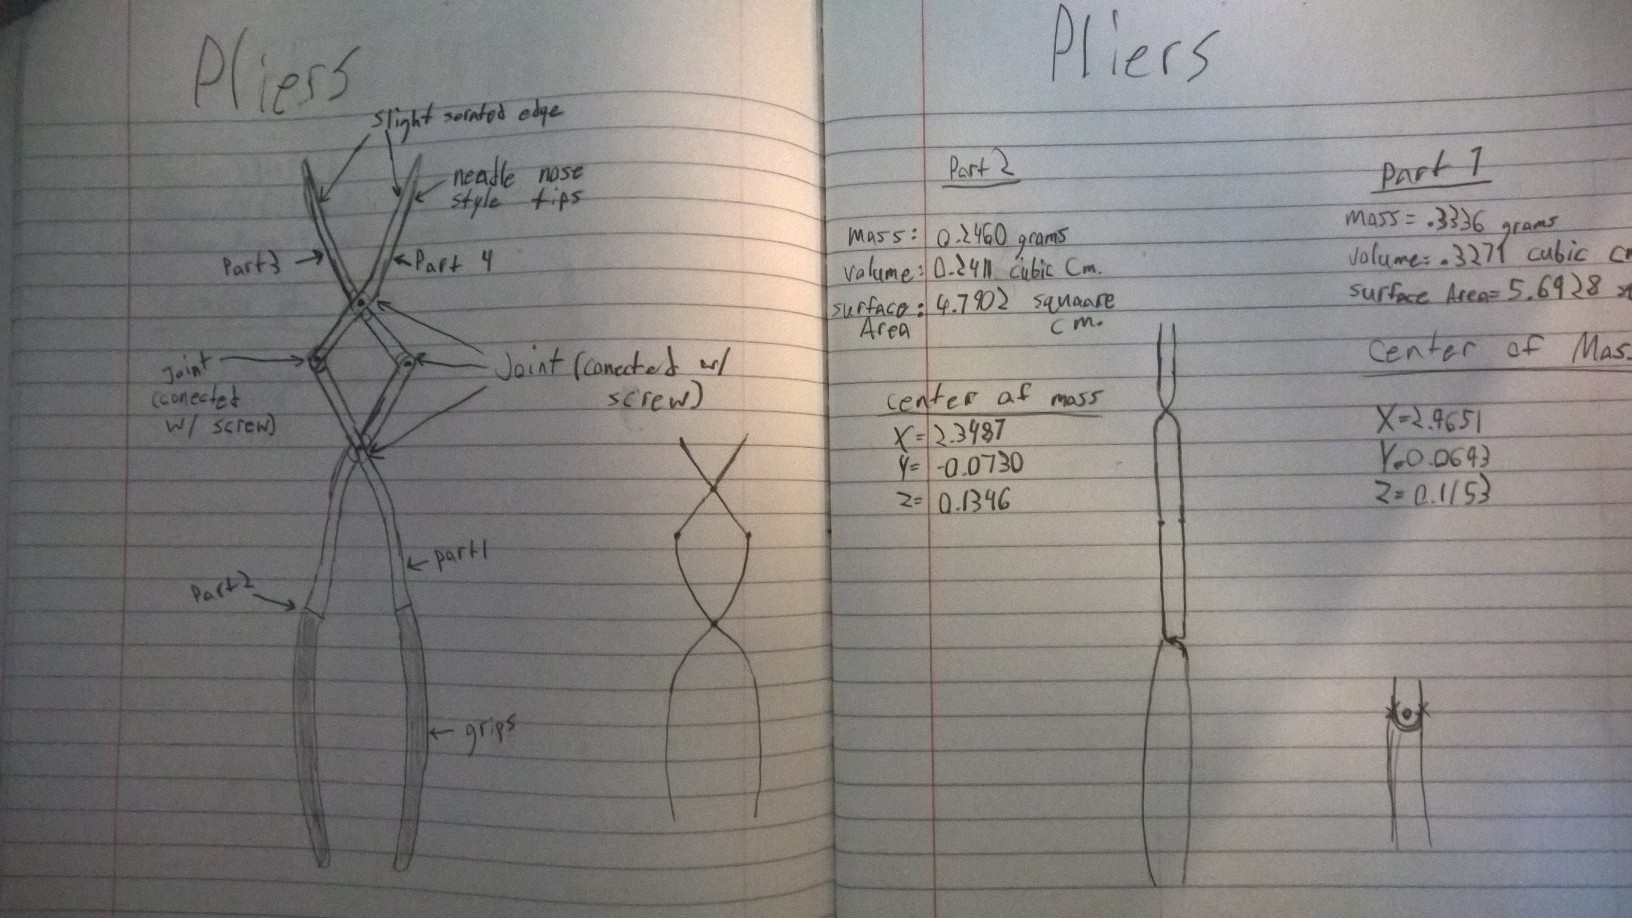 Pliers
slight serated edge
needle nose
style tips
Part3
Part 4
Joint
(conected
w/ screw)
Joint (conected w/
screw)
part1
Part2
grips
Pliers
Part 2
mass: 0.2460 grams
volume: 0.2411 cubic Cm.
surface: 4.7902 squaare
Area cm.
center of mass
X= 2.3487
Y= -0.0730
Z= 0.1346
Part 1
mass= .3336 grams
volume: .3271 cubic
surface Area= 5.6928
Center of Mas
X=2.9651
Y=0.0693
Z=0.1153